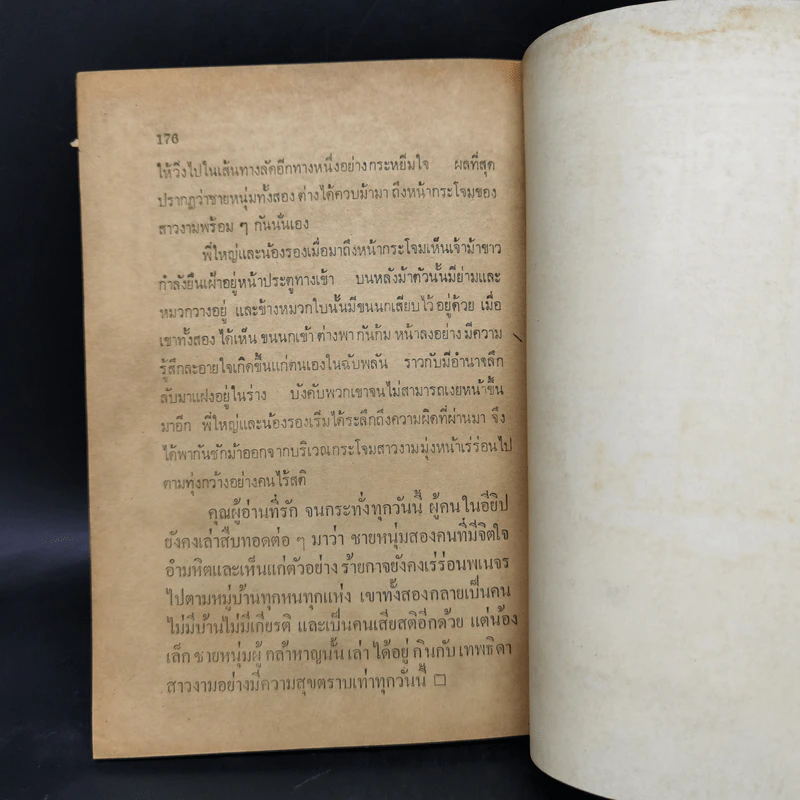 176
ให้วิ่งไปในเส้นทางลัดอีกทางหนึ่งอย่างกระหยิ่มใจ ผลที่สุด
ปรากฏว่าชายหนุ่มทั้งสอง ต่างได้ควบม้ามา ถึงหน้ากระโจมของ
สาวงามพร้อม ๆ กันนั่นเอง
พี่ใหญ่และน้องรองเมื่อมาถึงหน้ากระโจมเห็นเจ้าม้าขาว
กำลังยืนเฝ้าอยู่หน้าประตูทางเข้า บนหลังม้าตัวนั้นมีย่ามและ
หมวกวางอยู่ และข้างหมวกใบนั้นมีขนนกเสียบไว้ อยู่ด้วย เมื่อ
เขาทั้งสอง ได้เห็น ขนนกเข้า ต่างพา กันก้ม หน้าลงอย่าง มีความ
รู้สึกละอายใจเกิดขึ้นแก่ตนเองในฉับพลัน ราวกับมีอำนาจลึก
ลับมาแฝงอยู่ในร่าง บังคับพวกเขาจนไม่สามารถเงยหน้าขึ้น
มาอีก พี่ใหญ่และน้องรองเริ่มได้ระลึกถึงความผิดที่ผ่านมา จึง
ได้พากันชักม้าออกจากบริเวณกระโจมสาวงามมุ่งหน้าเร่ร่อนไป
ตามทุ่งกว้างอย่างคนไร้สติ
คุณผู้อ่านที่รัก จนกระทั่งทุกวันนี้ ผู้คนในอียิป
ยังคงเล่าสืบทอดต่อ ๆ มาว่า ชายหนุ่มสองคนที่มีจิตใจ
อำมหิตและเห็นแก่ตัวอย่าง ร้ายกาจยังคงเร่ร่อนพเนจร
ไปตามหมู่บ้านทุกหนทุกแห่ง เขาทั้งสองกลายเป็นคน
ไม่มีบ้านไม่มีเกียรติ และเป็นคนเสียสติอีกด้วย แต่น้อง
เล็ก ชายหนุ่มผู้ กล้าหาญนั้น เล่า ได้อยู่ กินกับ เทพธิดา
สาวงามอย่างมีความสุขตราบเท่าทุกวันนี้ □